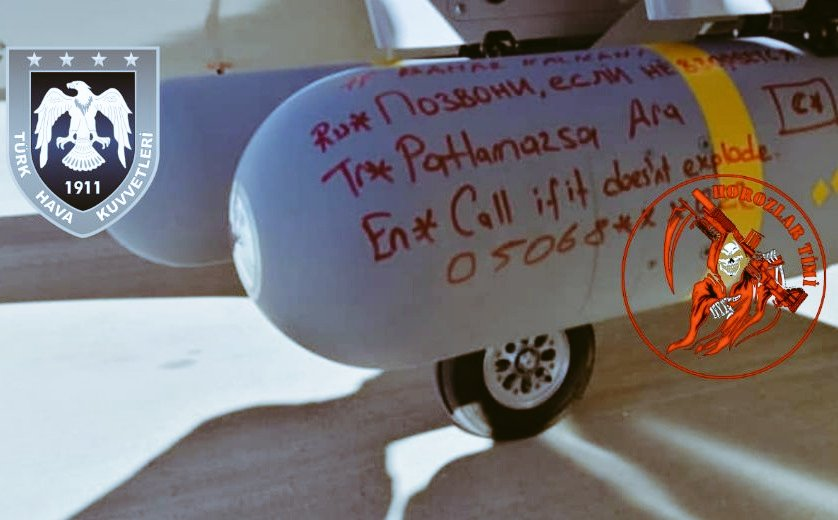 TÜRK HAVA KUVVETLERİ
1911
Ru* Позвони, если не взорвется
Tr* Patlamazsa Ara
En* Call if it does'nt explode.
05068**
HOROZLAR TİMİ